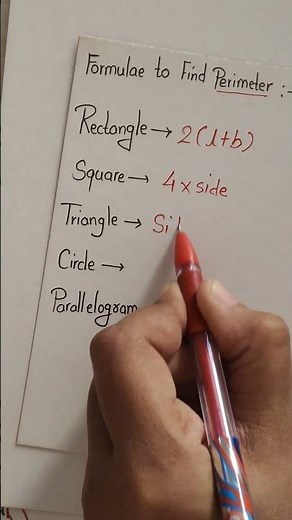 Formulae to Find Perimeter :-
Rectangle → 2(l+b)
Square → 4 x side
Triangle → Si
Circle →
Parallelogram